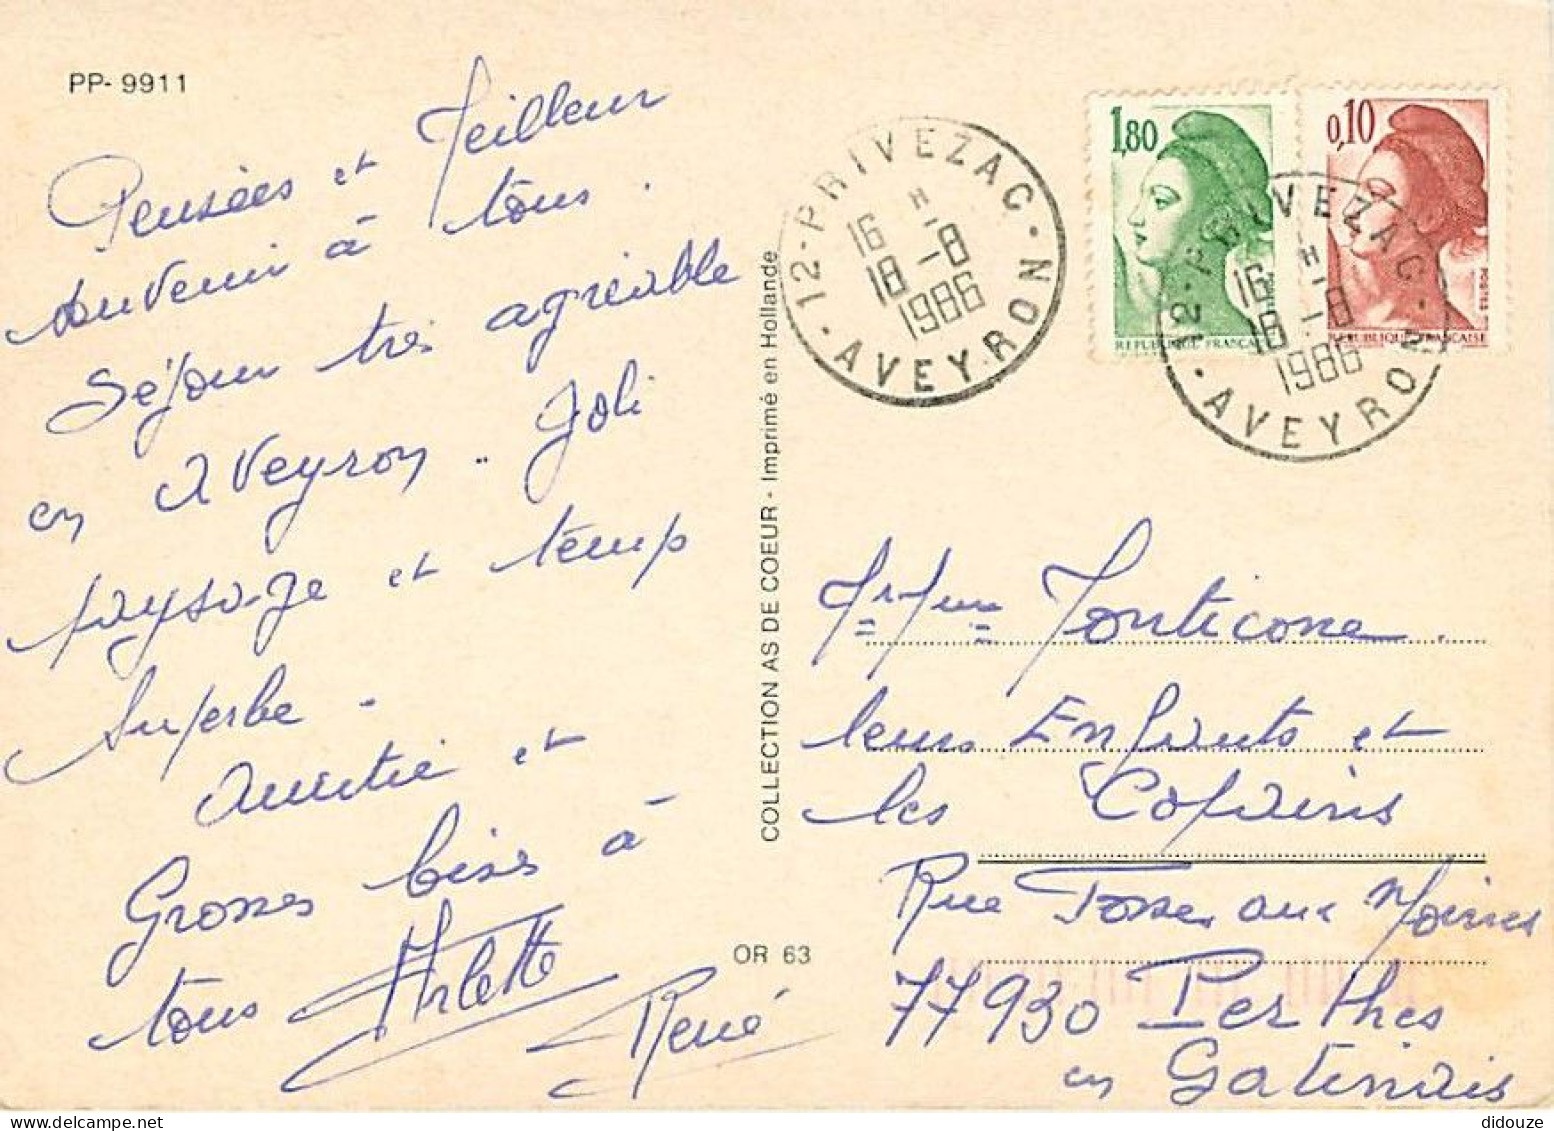 PP- 9911
Pensées et Meilleur
Souvenir à tous.
Séjour très agréable
en Aveyron .. Joli
paysage et temps
superbe -
Amitié et
Grosses bises à
tous Arlette
René
COLLECTION AS DE COEUR - Imprimé en Hollande
OR 63
12 - PRIVEZAC - AVEYRON
16 H
18 - 8
1986
1,80
REPUBLIQUE FRANÇAISE
0,10
POSTES
REPUBLIQUE FRANÇAISE
12 - PRIVEZAC - AVEYRON
16 H
18 - 8
1986
Mr Mme Monticone
leurs Enfants et
les Copains
Rue Fosses aux Moines
77930 Perthes
en Gatinais
didouze